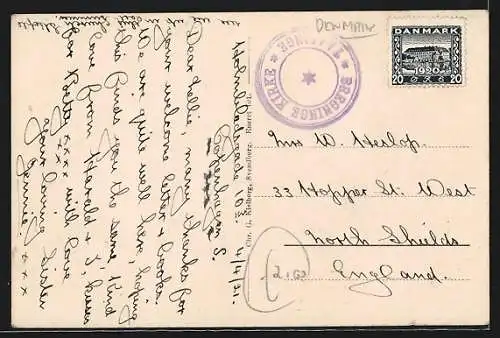 DENMARK
DANMARK
1920
20 20
BREGNINGE KIRKE
Holmbladsgade 103.
Copenhagen S.
4/4/31.
Dear Nellie, many thanks for
your welcome letter & books.
We are quite well here, hoping
this finds you the same, kind
love from Harald & I, kisses
for Peter xxxx with love
your loving sister
Jennie. xxx
Chr. G. Kielberg, Svendborg. Eneret
Mrs W. Heslop.
33 Hopper St. West
North Shields
England.